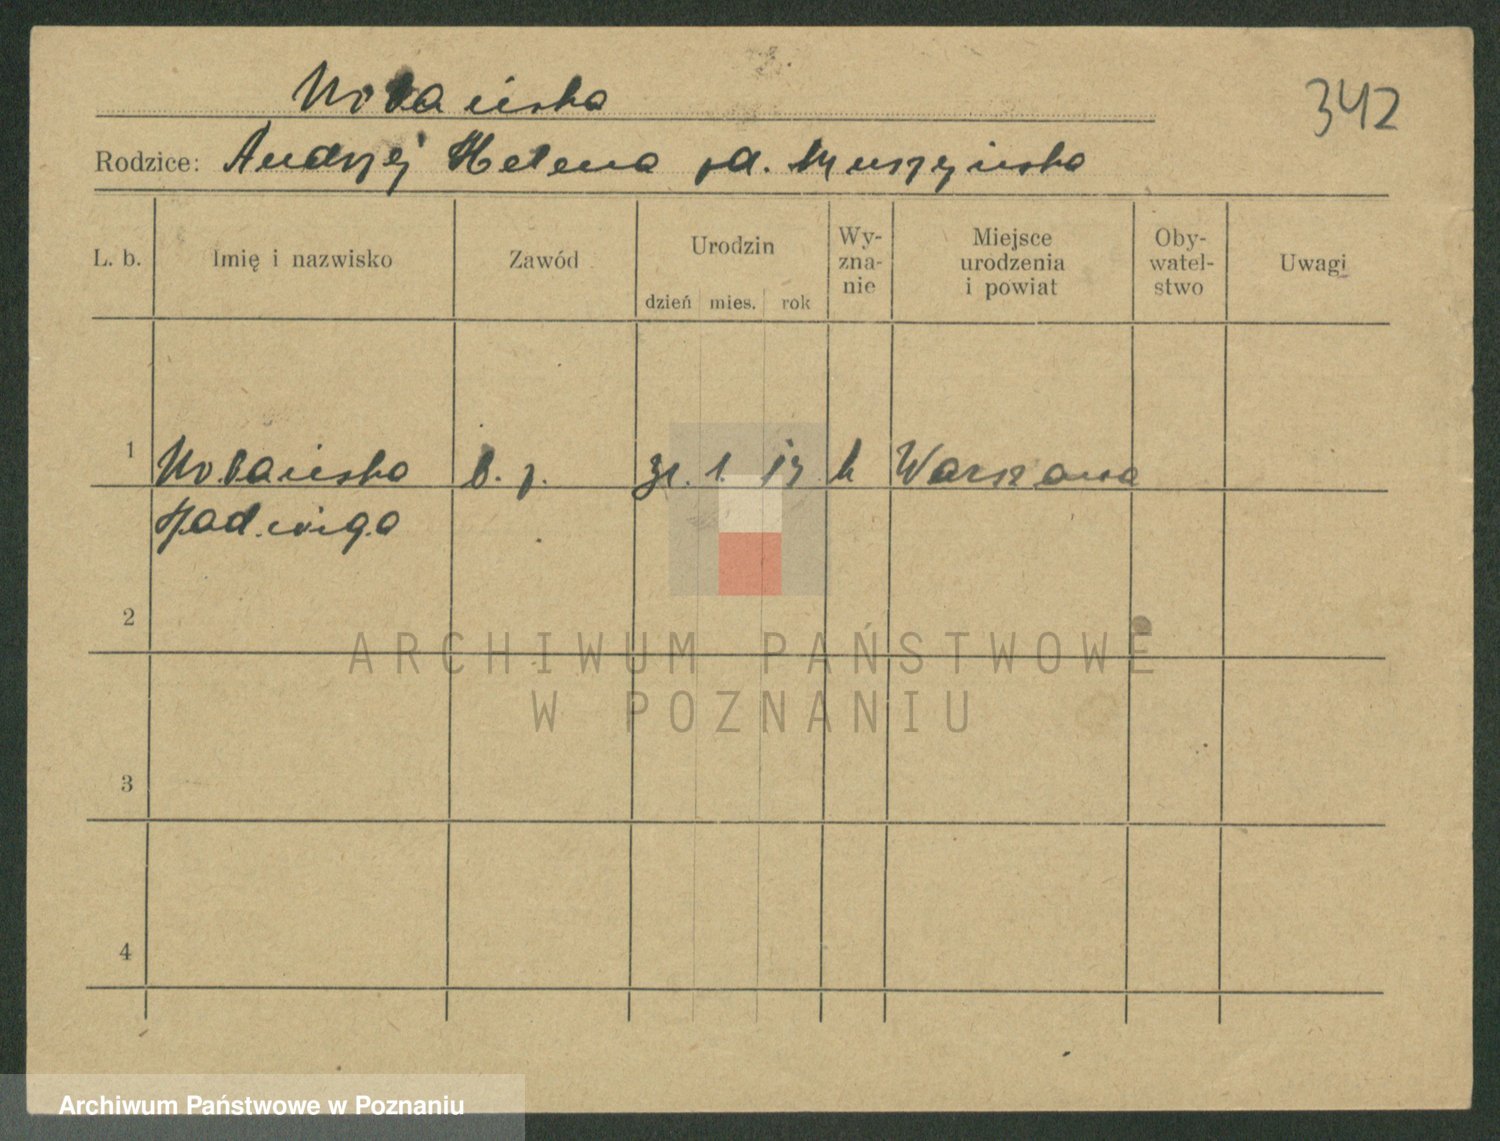 342
Rodzice: Andrzej Helena zd. Muszyńska
L. b. Imię i nazwisko Zawód Urodzin dzień mies. rok Wy-zna-nie Miejsce urodzenia i powiat Oby-watel-stwo Uwagi
1 b. z. 31. 1. Warszawa
Jadwiga
2
ARCHIWUM PAŃSTWOWE
W POZNANIU
3
4
Archiwum Państwowe w Poznaniu